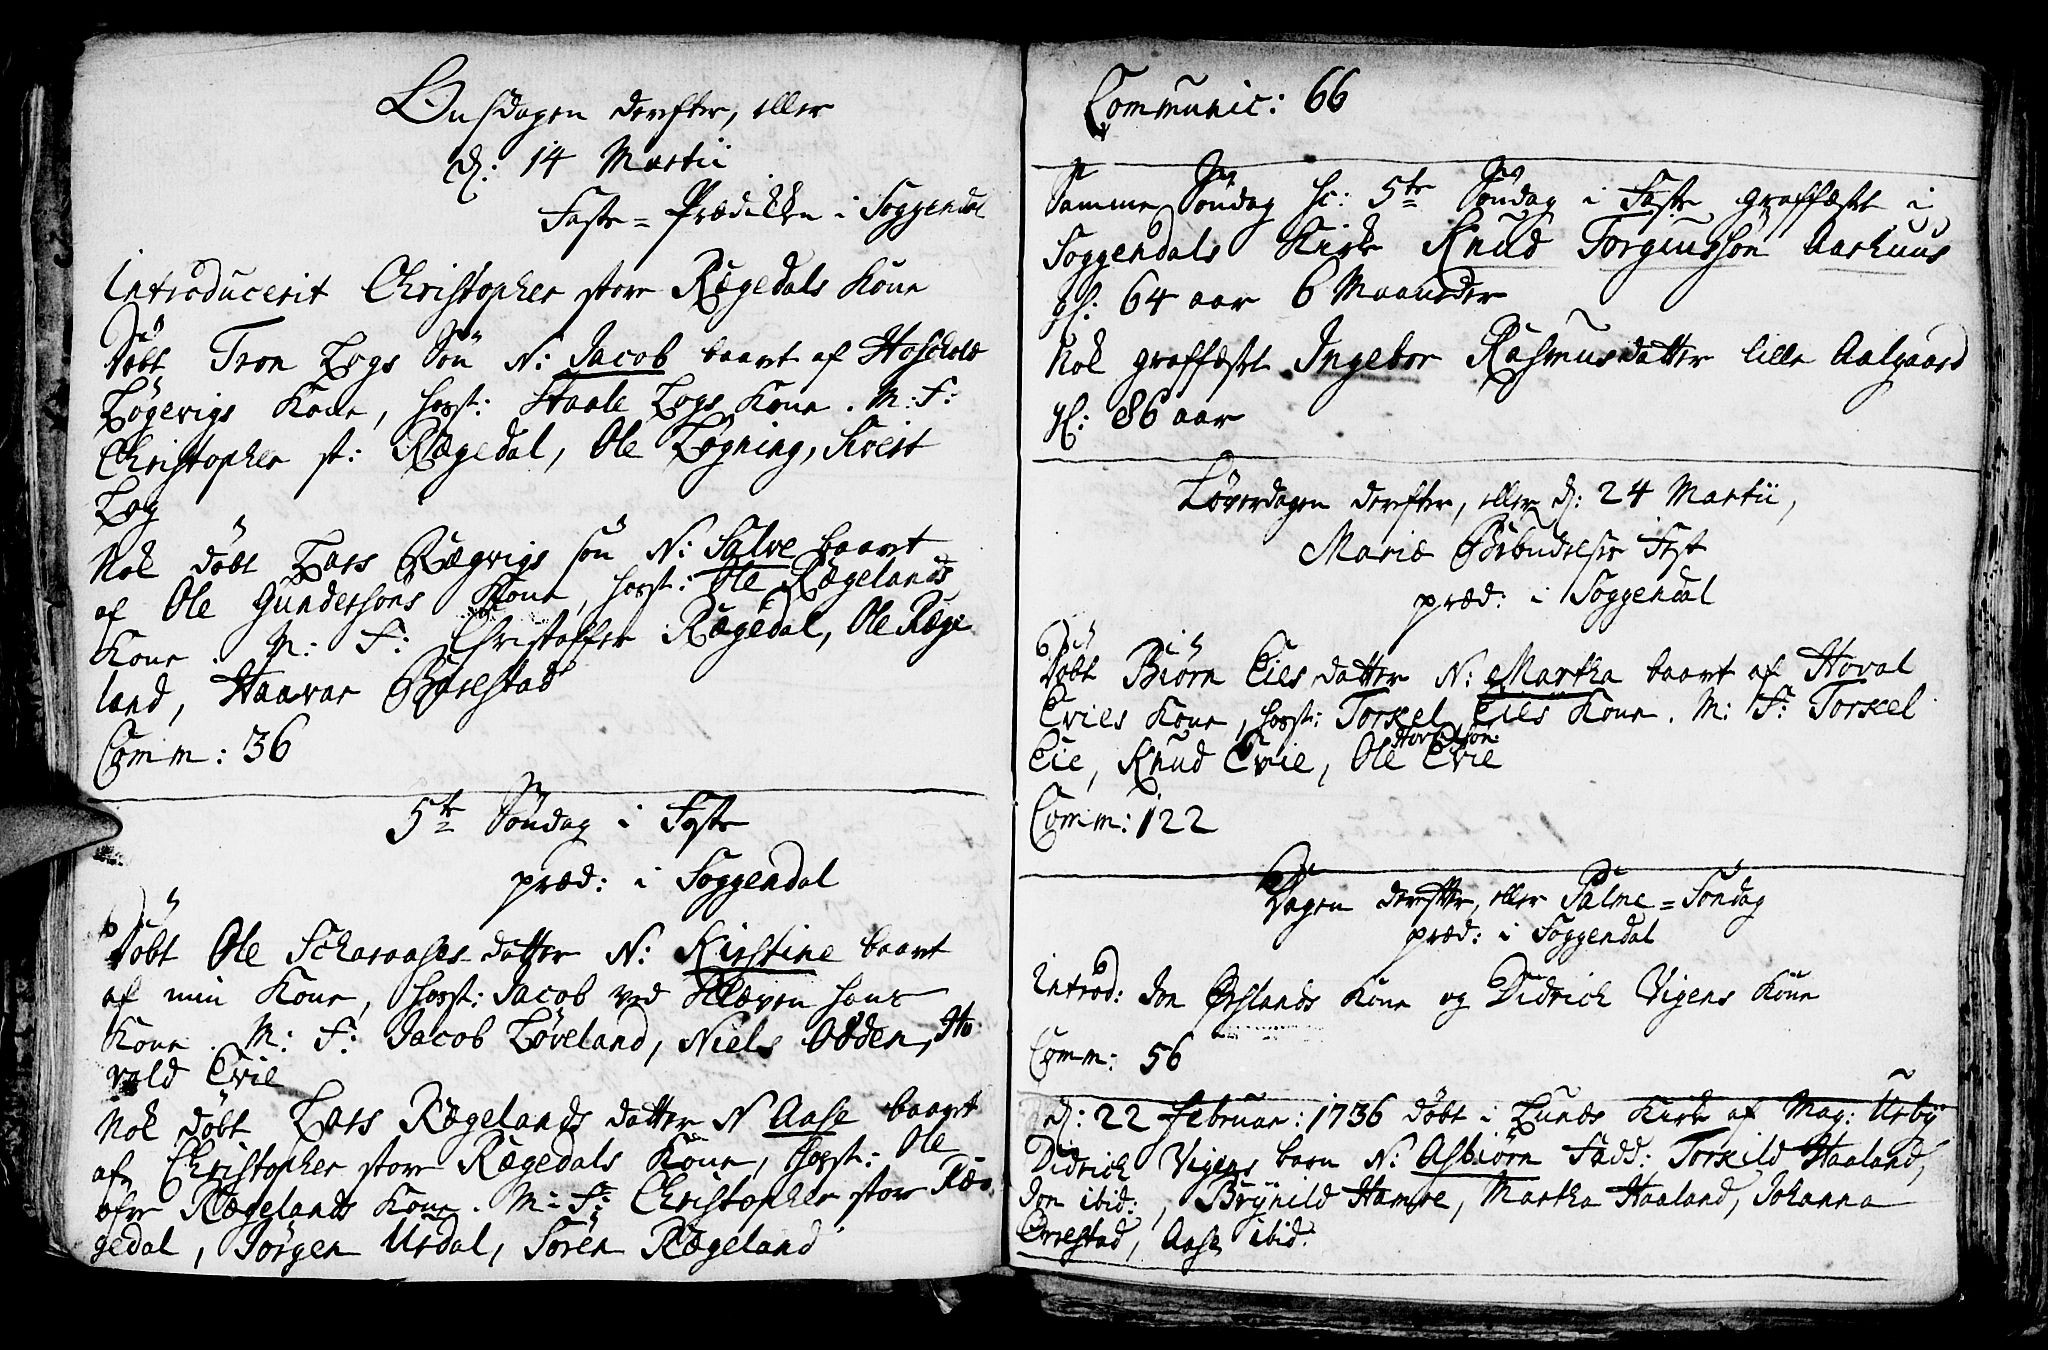 Onsdagen derefter, eller
d: 14 Martii
Faste-Prædikken i Soggendal
Introducerit Christopher store Rægedals Kone
Döbt Tron Logs Sön N: Jacob baaret af Hoskold
Løgevigs Kone, hoest: Staale Logs Kone. M: F:
Christopher st: Rægedal, Ole Løgning, Sivert
Log
Nok döbt Lars Rægevigs sön N: Salve baaret
af Ole Gundersöns Kone, hoest: Ole Rægelands
Kone. M: F: Christoffer Rægedal, Ole Ræge
land, Haavar Barestad
Comm: 36
5te Söndag i Faste
præd: i Soggendal
Döbt Ole Scharaases datter N: Kirstine baaret
af min Kone, hoest: Jacob ved Elven hans
Kone. M: F: Jacob Løveland, Niels Odden, Ho
vald Evie
Nok döbt Lars Rægelands datter N Aase baaret
af Christopher store Rægedals Kone, hoest: Ole
øfre Rægelands Kone. M: F: Christopher store Ræ
gedal, Jörgen Urdal, Sören Rægeland
Communic: 66
Samme Söndag sc: 5te Söndag i Faste graffæstet i
Soggendals Kirke Knud Torgiussön Aarhuus
gl: 64 aar 6 Maaneder
Nok graffæstet Ingebor Rasmusdatter lille Aalgaard
gl: 86 aar
Löverdagen derefter, eller d: 24 Martii,
Mariæ Bebudelses Fest
præd: i Soggendal
Döbt Biörn Eies datter N: Martha baaret af Hoval
Evies Kone, hoest: Torkel Eies Kone. M: F: Torkel
Eie, Knud Evie, Ole Hovalsön Evie
Comm: 122
Dagen derefter, eller Palme-Söndag
præd: i Soggendal
Introd: Jon Ørslands Kone og Didrich Vigens Kone
Comm: 56
d: 22 Februar: 1736 döbt i Lunds Kirke af Mag: Urbÿ
Didrich Vigens barn N: Asbiörn Fadd: Torkild Haaland,
Jon ibid:, Brÿnild Hamre, Martha Haaland, Johanna
Orrestad, Aase ibid: